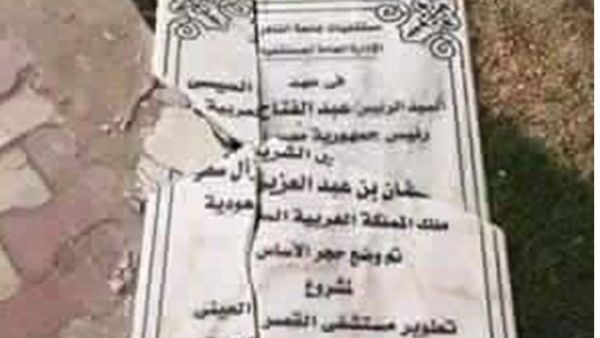 مستشفيات جامعة القاهرة
الإدارة العامة للمستشفيات
فى عهد
السيد الرئيس عبد الفتاح السيسى
رئيس جمهورية مصر العربية
الشري
بن عبد العزيز آل سعو
ملك المملكة العربية السعودية
تم وضع حجر الأساس
لمشروع
تطوير مستشفى القصر العينى